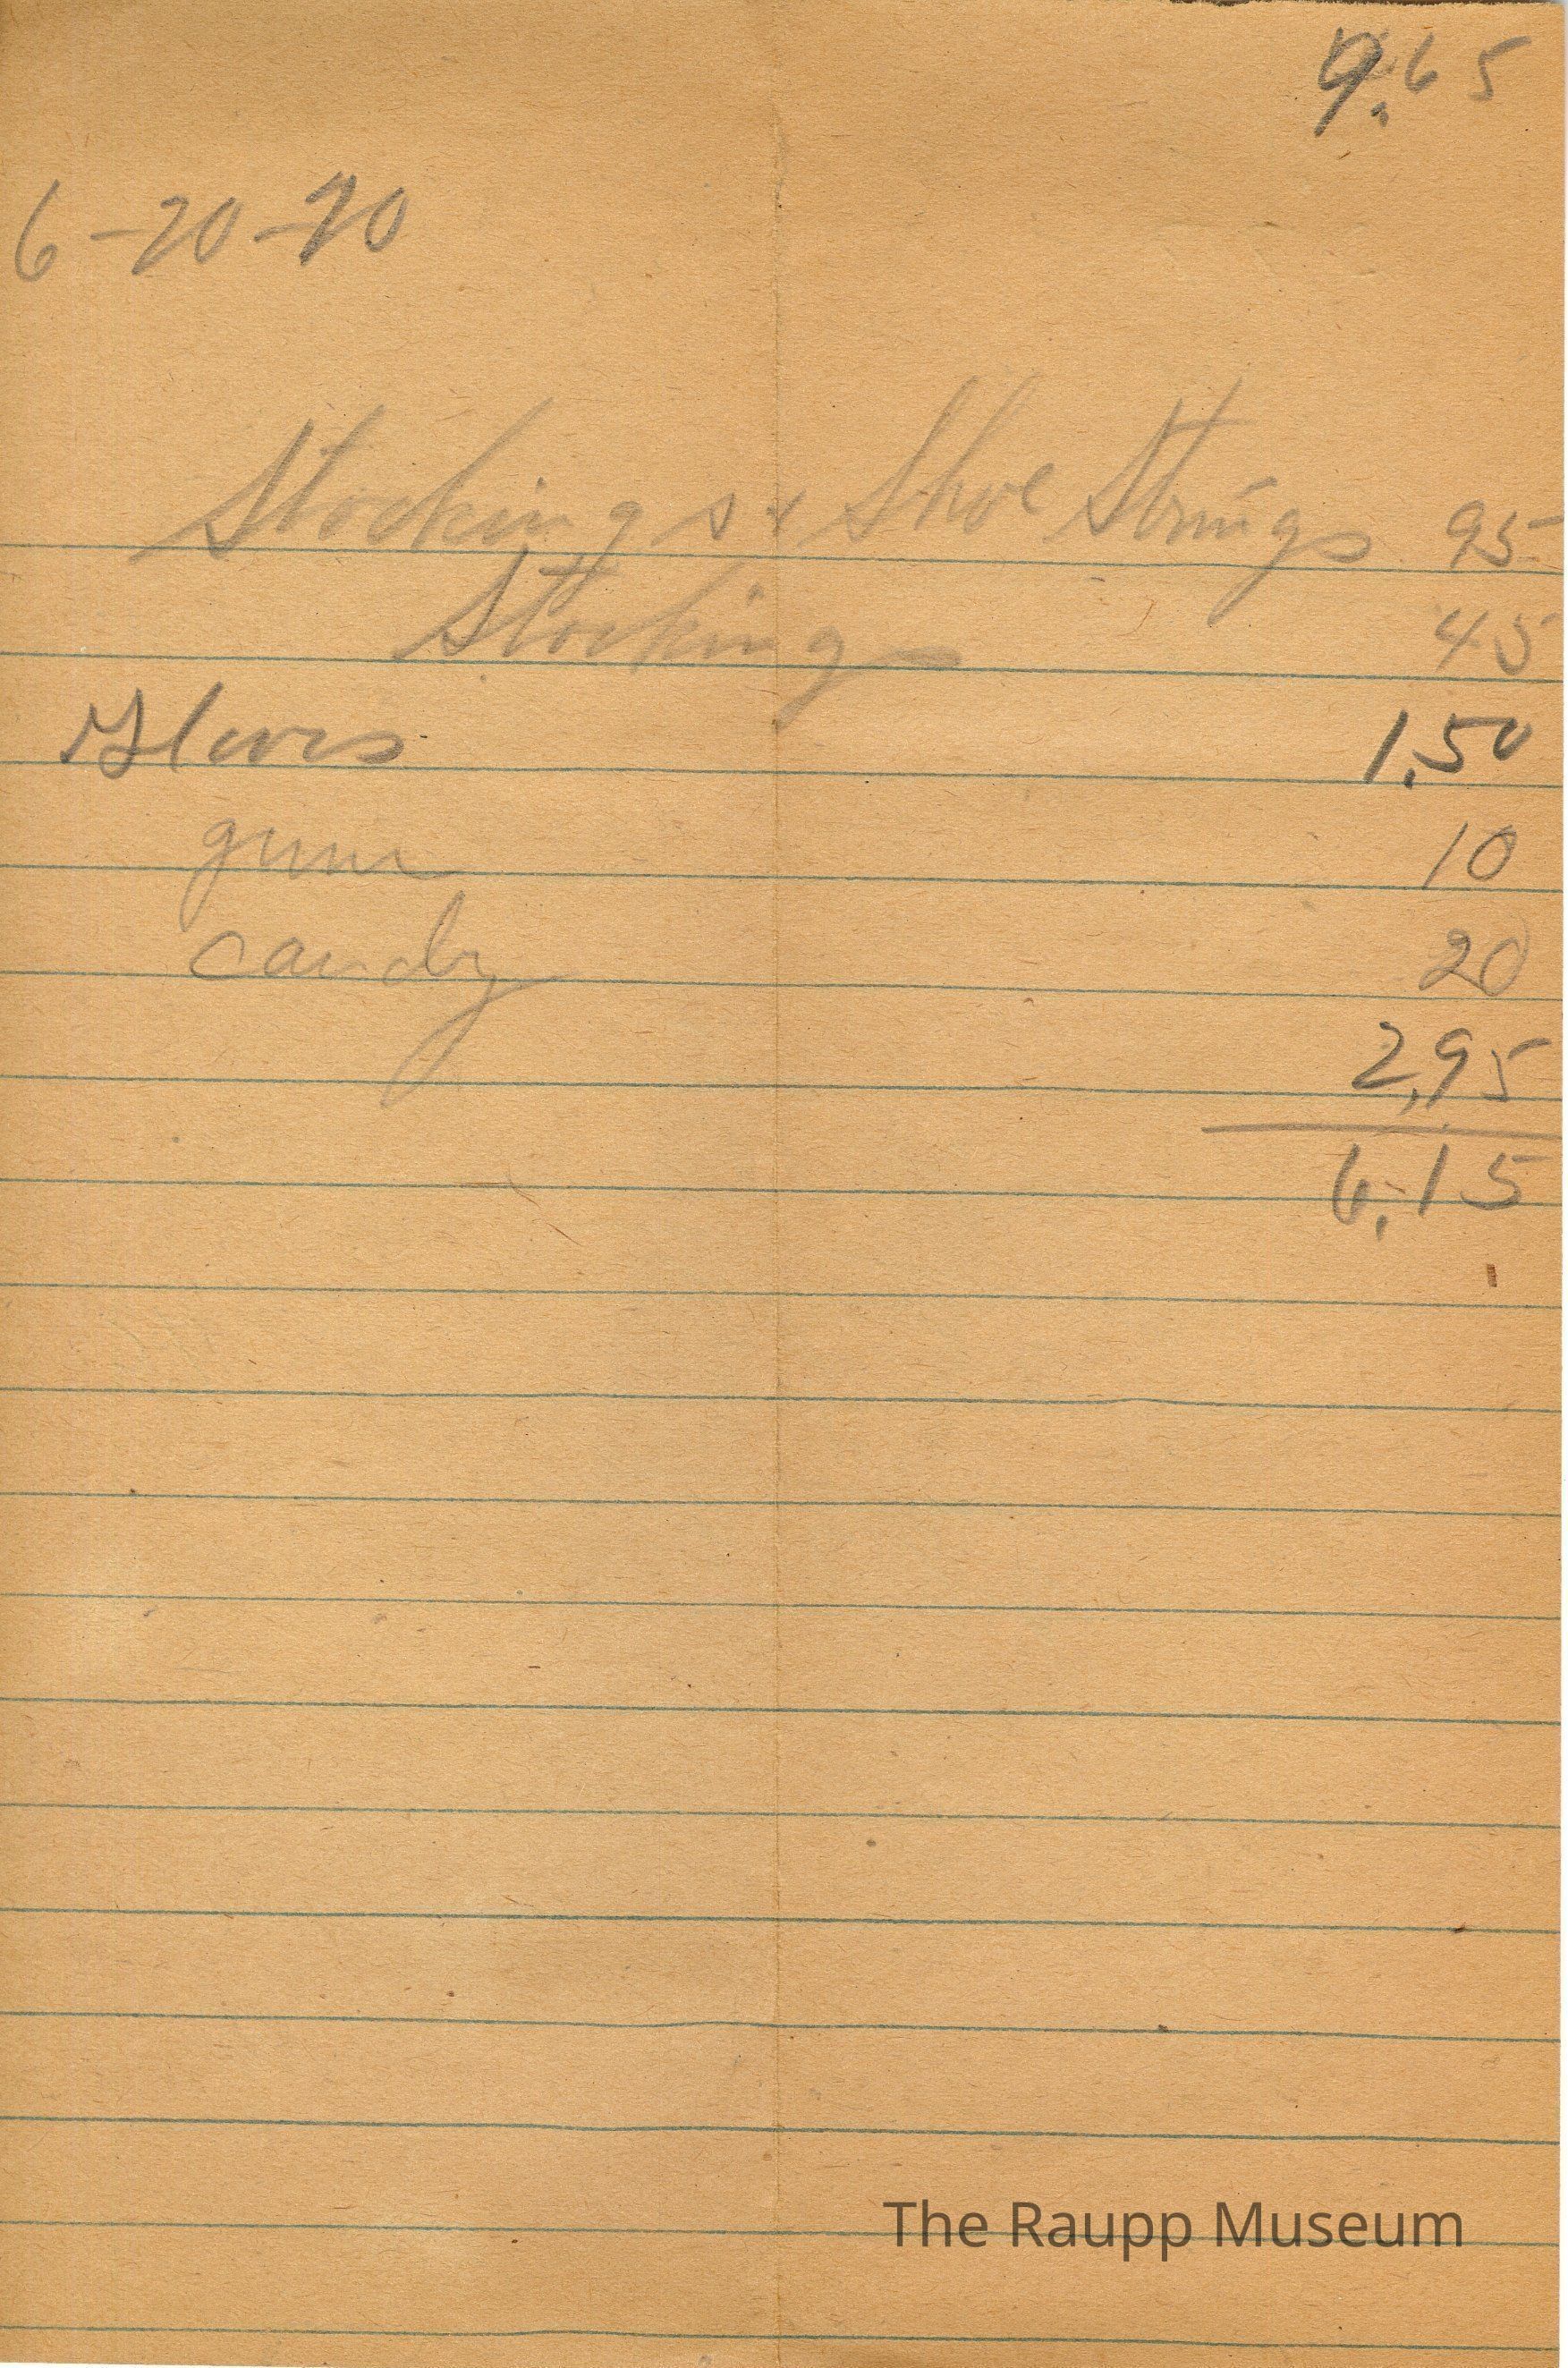 9.65
6-20-20
Stockings & Shoe Strings 95
Stocking 45
Gloves 1.50
gum 10
candy 20
2.95
6.15
The Raupp Museum